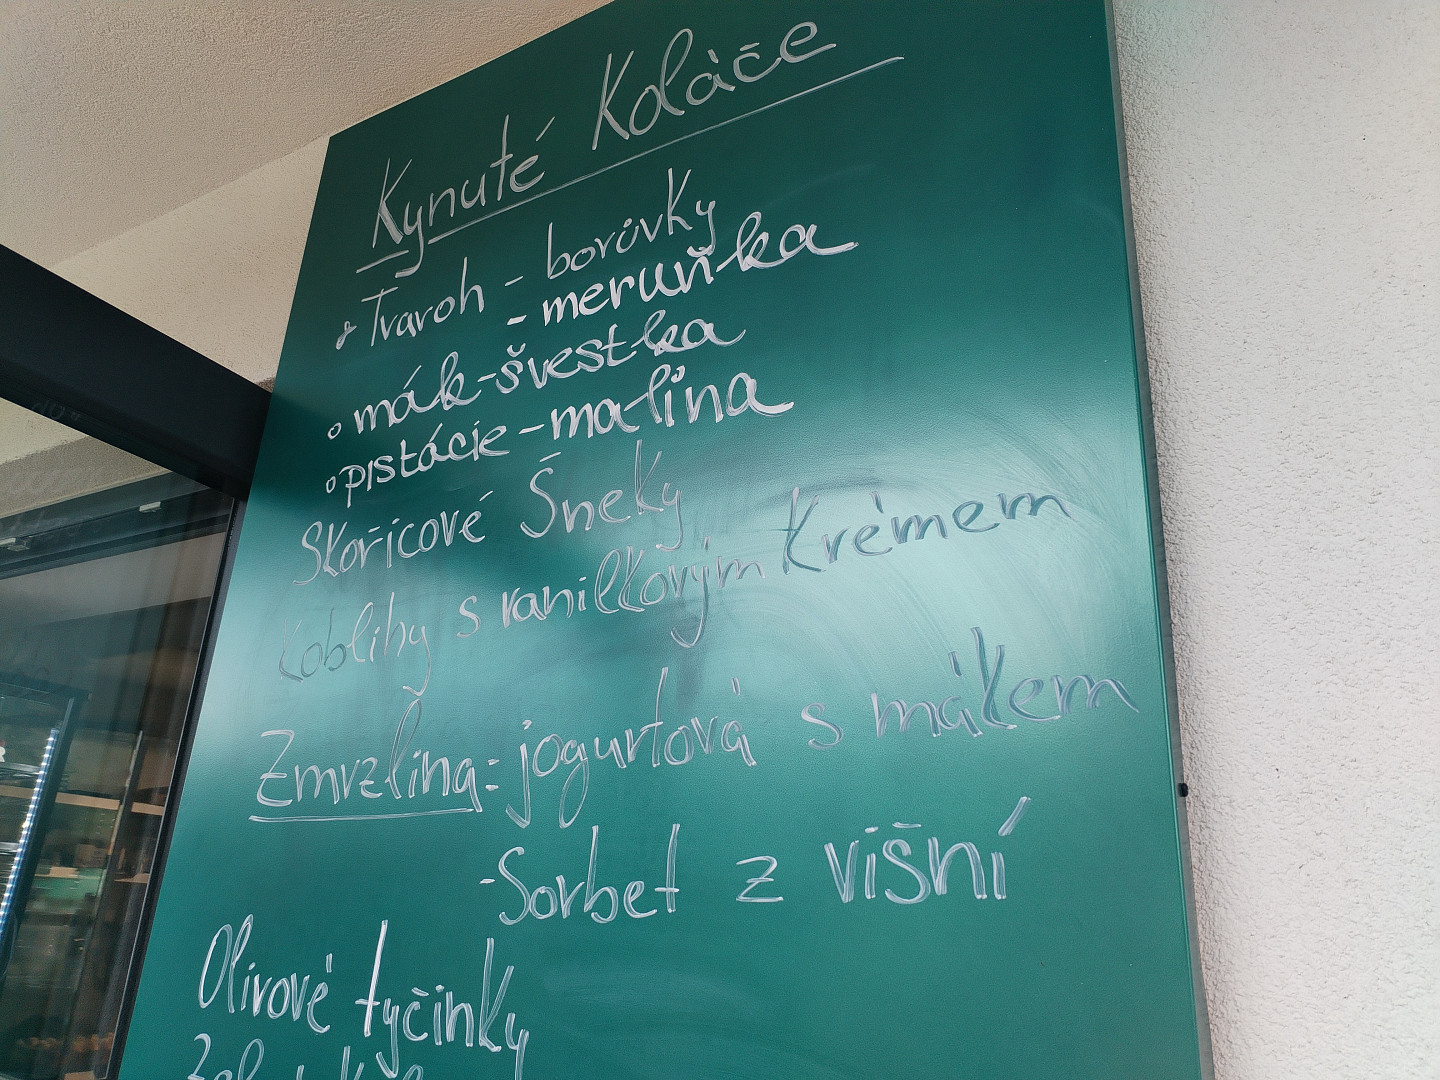 Kynuté Koláče
Tvaroh - borůvky
- meruňka
mák-švestka
pistácie-malina
Skořicové Šneky
Koblihy s vanilkovým Krémem
Zmrzlina: jogurtová s mákem
- Sorbet z višní
Olivové tyčinky